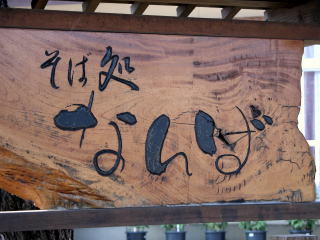 そば処
なんば